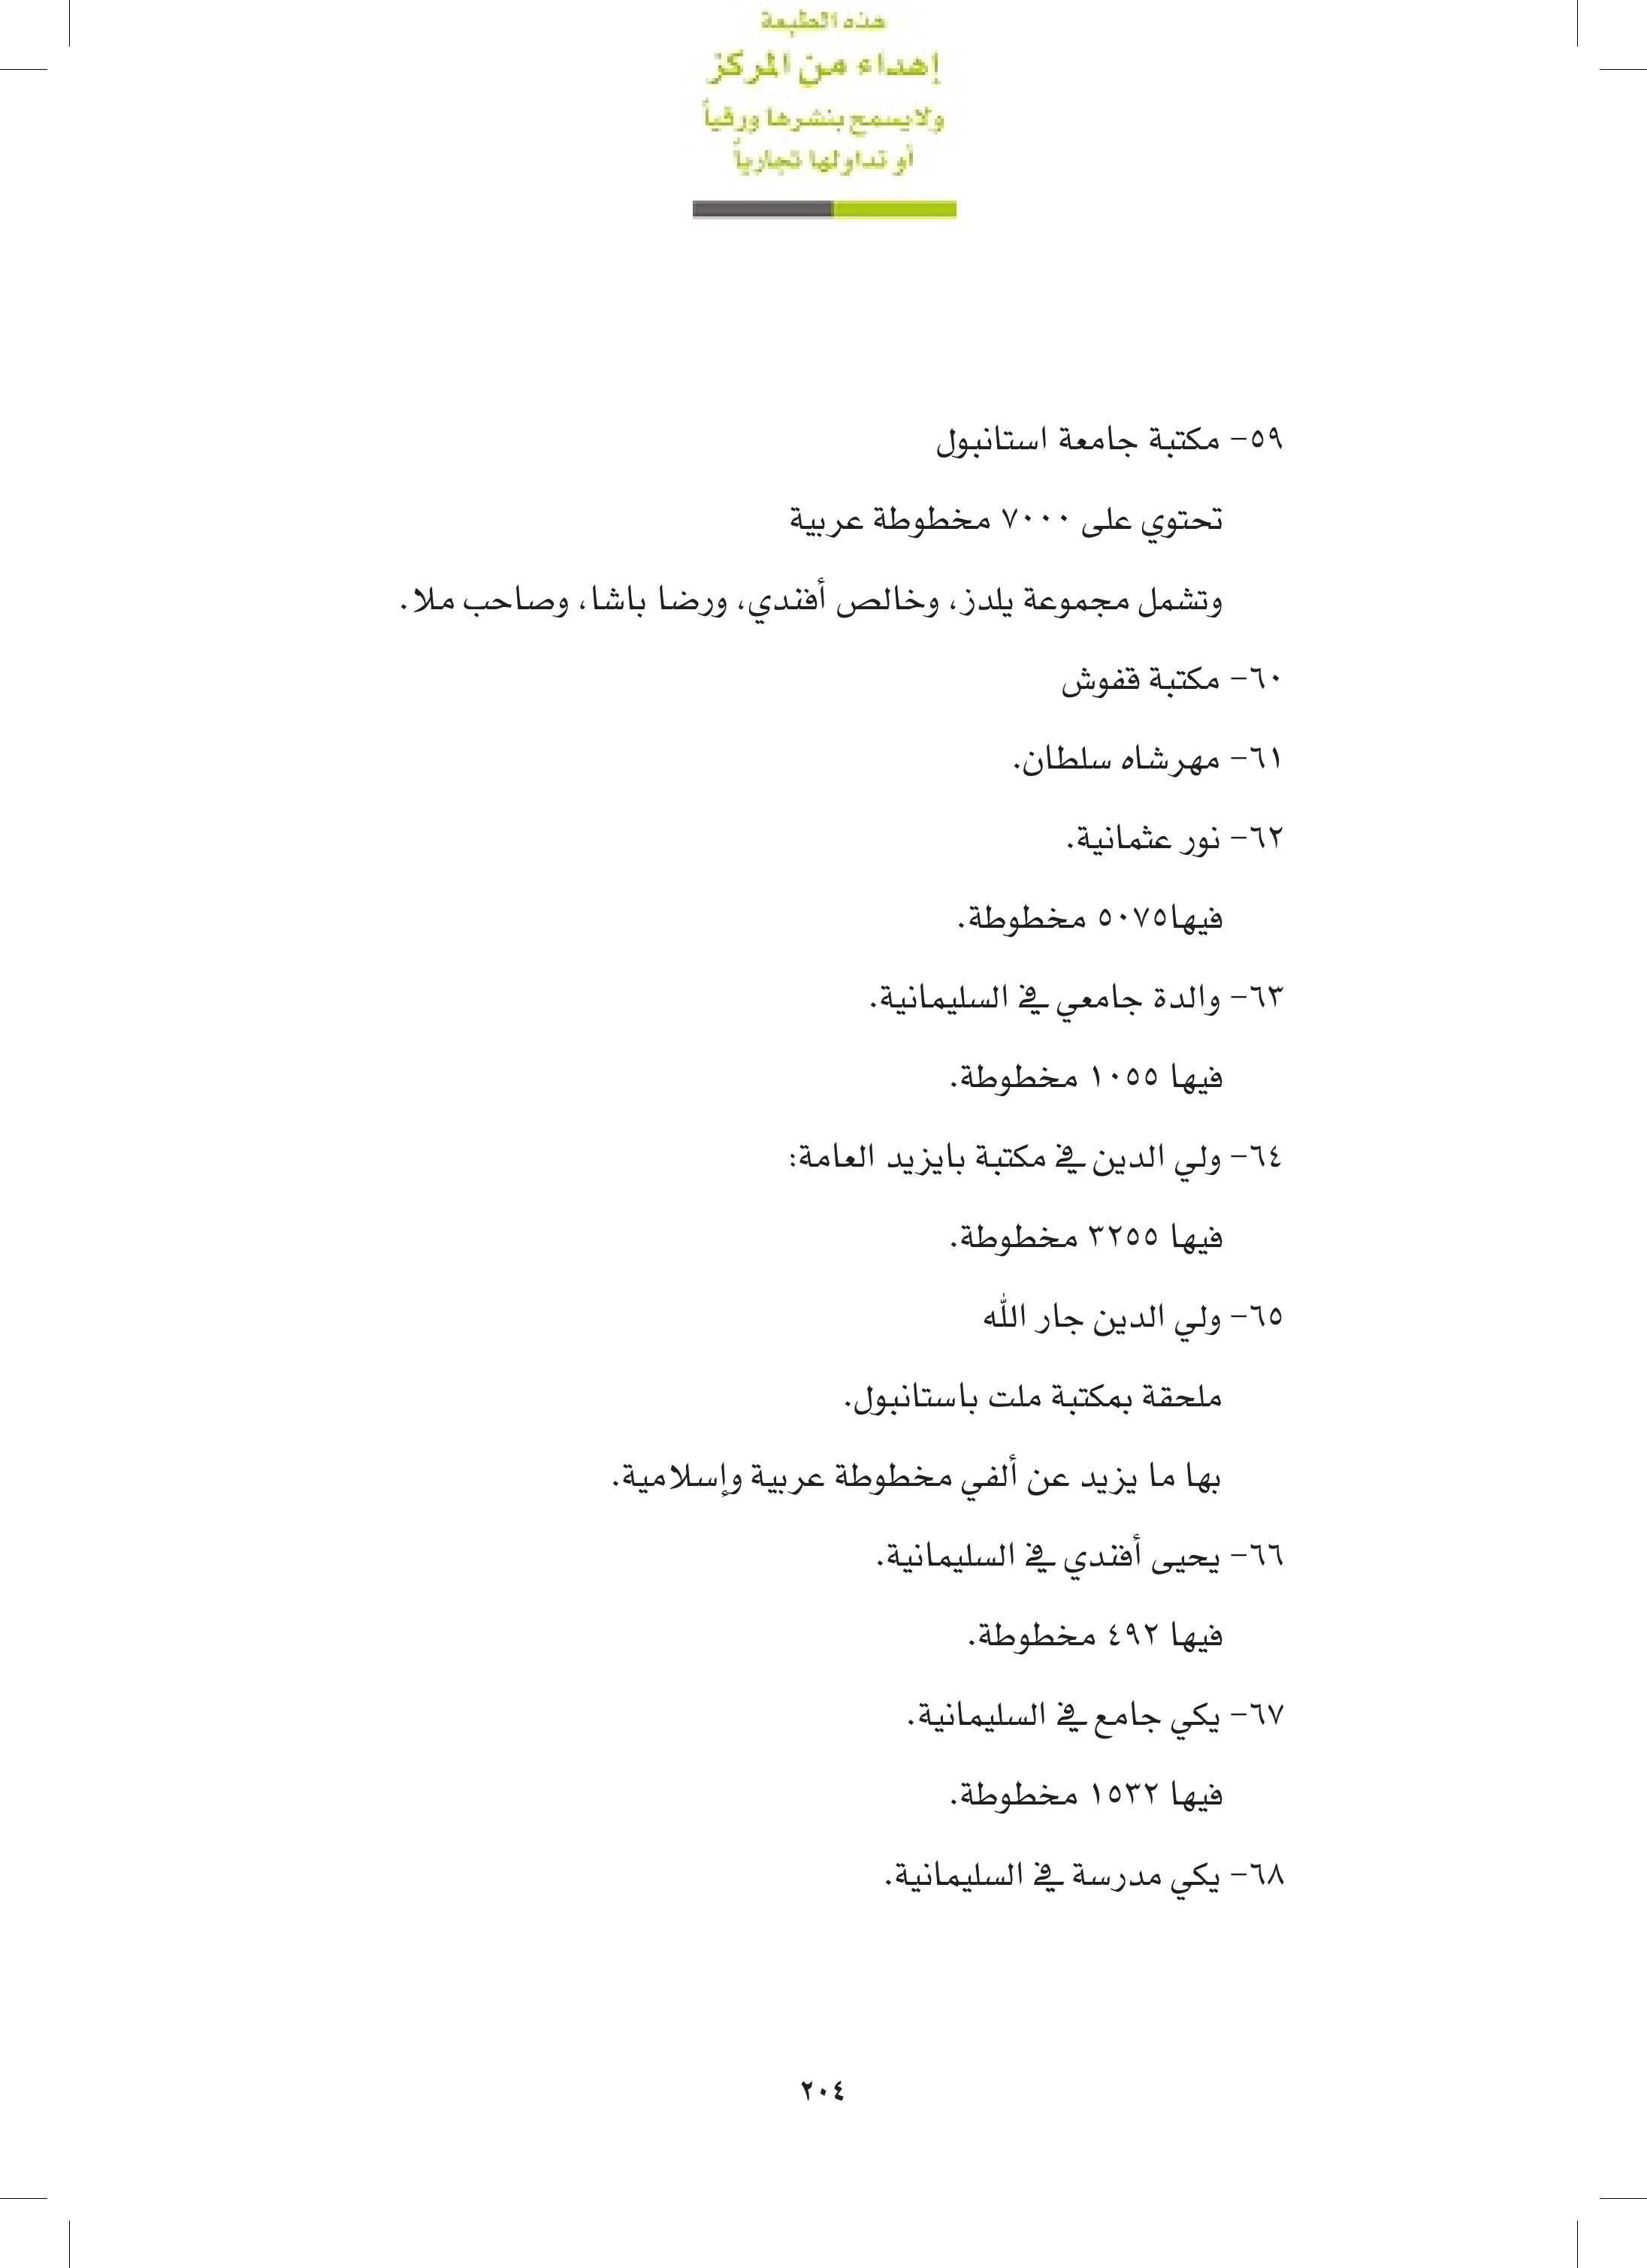 هذه الطبعة
إهداء من المركز
ولا يسمح بنشرها ورقياً
أو تداولها تجارياً
٥٩- مكتبة جامعة استانبول
تحتوي على ٧٠٠٠ مخطوطة عربية
وتشمل مجموعة يلدز، وخالص أفندي، ورضا باشا، وصاحب ملا.
٦٠- مكتبة قفوش
٦١- مهرشاه سلطان.
٦٢- نور عثمانية.
فيها٥٠٧٥ مخطوطة.
٦٣- والدة جامعي في السليمانية.
فيها ١٠٥٥ مخطوطة.
٦٤- ولي الدين في مكتبة بايزيد العامة:
فيها ٣٢٥٥ مخطوطة.
٦٥- ولي الدين جار الله
ملحقة بمكتبة ملت باستانبول.
بها ما يزيد عن ألفي مخطوطة عربية وإسلامية.
٦٦- يحيى أفندي في السليمانية.
فيها ٤٩٢ مخطوطة.
٦٧- يكي جامع في السليمانية.
فيها ١٥٣٢ مخطوطة.
٦٨- يكي مدرسة في السليمانية.
٢٠٤